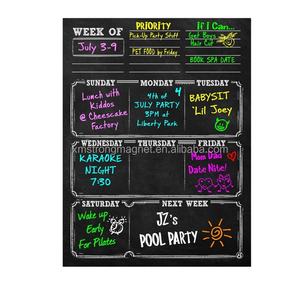 WEEK OF
July 3-9
PRIORITY
Pick-Up Party Stuff
PET FOOD by Friday
If I Can...
Get Boys
Hair Cut
BOOK SPA DATE
SUNDAY
MONDAY
TUESDAY
Lunch with
Kiddos
@ Cheesecake
Factory
4
4th of
JULY PARTY
3PM at
Liberty Park
BABYSIT
'Lil Joey
WEDNESDAY
THURSDAY
FRIDAY
KARAOKE
NIGHT
7:30
Mom Dad
Date Nite!
SATURDAY
NEXT WEEK
Wake up
Early
For Pilates
JZ's
POOL PARTY
kmstrongmagnet.en.alibaba.com